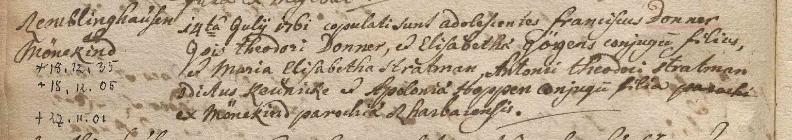 Remblinghausen
Mönekind
+ 18.12.35
+ 18.12.05
+ 27.11.01
14ta Julij 1761 copulati sunt adolescentes Franciscus Donner
Theodori Donner, et Elisabetha Görgens conjugū filius,
et Maria Elisabetha Stratman, Antonii Theodori Stratman
dictus Keünicke et Apolonia Hoppen conjugū filia
ex Mönekind parochiæ Rharbacensis.